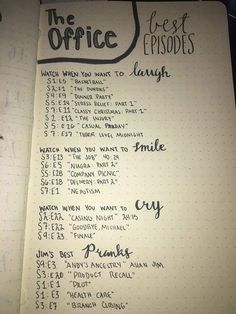 The Office
best EPISODES
WATCH WHEN YOU WANT TO laugh
S1:E5 "BASKETBALL"
S2:E1 "THE DUNDIES"
S4:E9 "DINNER PARTY"
S5:E14 "STRESS RELIEF: PART 1"
S7:E11 "CLASSY CHRISTMAS: PART 1"
S2:E12 "THE INJURY"
S5:E26 "CASUAL FRIDAY"
S7:E17 "THREAT LEVEL MIDNIGHT"
WATCH WHEN YOU WANT TO smile
S3:E23 "THE JOB"
S6:E5 "NIAGARA: PART 2"
S5:E28 "COMPANY PICNIC"
S6:E18 "DELIVERY: PART 2"
S7:E1 "NEPOTISM"
WATCH WHEN YOU WANT TO cry
S2:E22 "CASINO NIGHT"
S7:E22 "GOODBYE, MICHAEL"
S9:E23 "FINALE"
JIM'S BEST Pranks
S9:E3 "ANDY'S ANCESTRY" ASIAN JIM
S3:E20 "PRODUCT RECALL"
S1:E1 "PILOT"
S1:E3 "HEALTH CARE"
S3:E7 "BRANCH CLOSING"